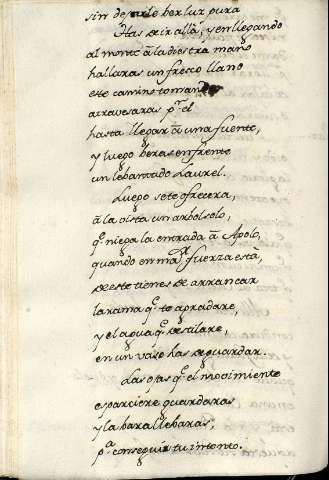 sin dejarle ber luz pura
Has de ir allà, y en llegando
al monte à la diestra mano
hallaras un fresco llano
este camino tomando
atravesaras pr. el
hasta llegar à una fuente,
y luego beras enfrente
un lebantado Laurel.
Luego se te ofrecera,
à la vista un arbol solo,
q.e niega la entrada à Apolo,
quando en mayor fuerza està,
de este tienes de arrancar
la rama q.e te agradare,
y el agua q.e destilare,
en un vaso has de guardar.
Las ojas q.e el movimiento
esparciere guardaras
y la bara llebaras,
p.a conseguir tu intento.